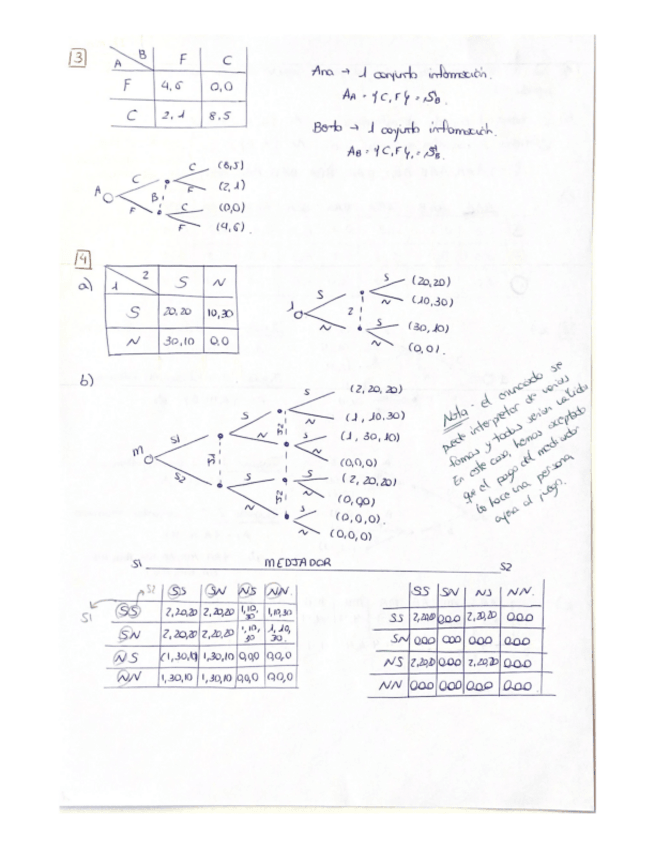 3
A B F C
F 4,6 0,0
C 2,1 8,5
Ana → 1 conjunto información.
AA = {C, F} = SB.
Berto → 1 conjunto información.
AB = {C, F}
A C F B
C (8,5)
F (2,1)
C (0,0)
F (4,6).
4
a)
1 2 S N
S 20,20 10,30
N 30,10 0,0
1 S N 2
S (20,20)
N (10,30)
S (30,10)
N (0,0).
b)
M S1 S2
S N S N
S (2,20,20)
N (1,10,30)
S (1,30,10)
N (0,0,0)
S (2,20,20)
N (0,0,0)
S (0,0,0).
N (0,0,0)
Nota: el enunciado se
puede interpretar de varias
formas y todas serían válidas
En este caso, hemos aceptado
que el pago del mediador
lo hace una persona
ajena al juego.
S1 MEDIADOR S2
S1 S2 SS SN NS NN
SS 2,20,20 2,20,20 1,10,30 1,10,30
SN 2,20,20 2,20,20 1,10,30 1,10,30.
NS (1,30,10 1,30,10 0,0,0 0,0,0
NN 1,30,10 1,30,10 0,0,0 0,0,0
SS SN NS NN.
SS 2,20,20 0,0,0 2,20,20 0,0,0
SN 0,0,0 0,0,0 0,0,0 0,0,0
NS 2,20,20 0,0,0 2,20,20 0,0,0
NN 0,0,0 0,0,0 0,0,0 0,0,0